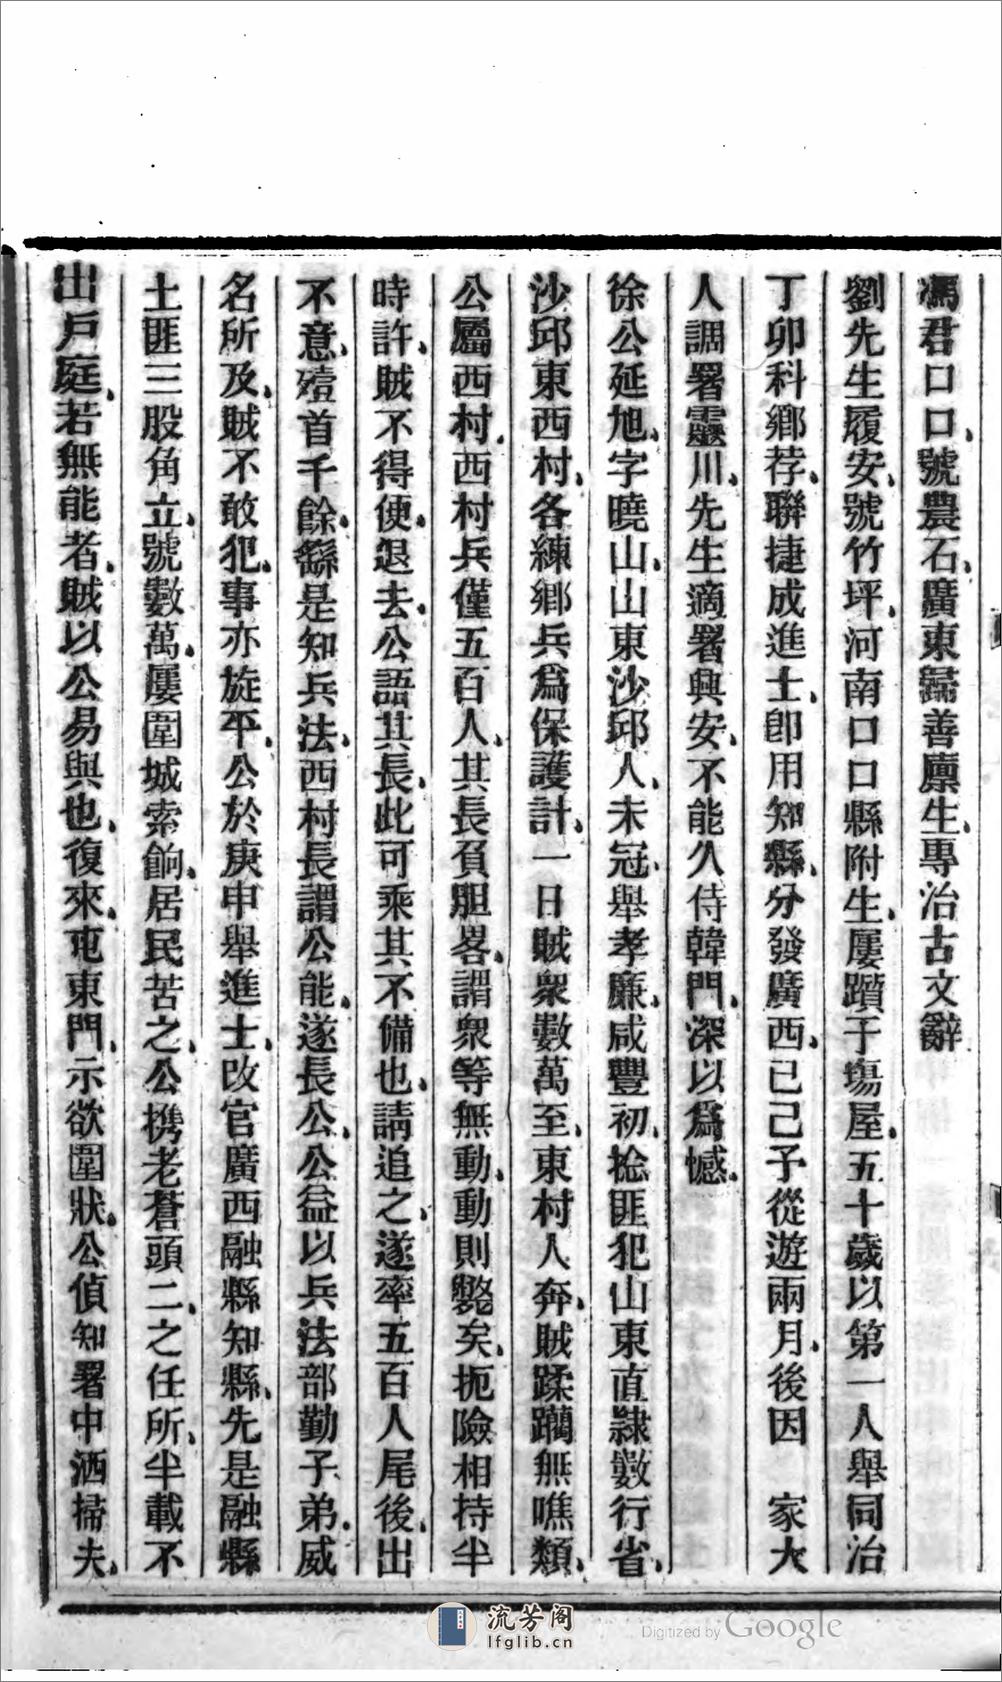 馮君口口號農石廣東歸善廩生專治古文辭
劉先生履安號竹坪河南口口縣附生屢躓于塲屋五十歲以第一人舉同治
丁卯科鄉荐聯捷成進士卽用知縣分發廣西已己予從遊兩月後因　家大
人調署靈川先生適署興安不能久侍韓門深以爲憾
徐公延旭字曉山山東沙邱人未冠舉孝廉咸豐初捻匪犯山東直隷數行省
沙邱東西村各練鄉兵爲保護計一日賊衆數萬至東村人奔賊蹂躪無噍類
公屬西村西村兵僅五百人其長頁胆畧謂衆等無動動則斃矣扼險相持半
時許賊不得便退去公語其長此可乘其不備也請追之遂率五百人尾後出
不意殪首千餘繇是知兵法西村長謂公能遂長公公益以兵法部勤子弟威
名所及賊不敢犯事亦旋平公於庚申舉進士改官廣西融縣知縣先是融縣
土匪三股角立號數萬屢圍城索餉居民苦之公携老蒼頭二之任所半載不
出戶庭若無能者賊以公易與也復來屯東門示欲圍狀公偵知署中洒掃夫
流芳阁
lfglib.cn
Digitized by Google